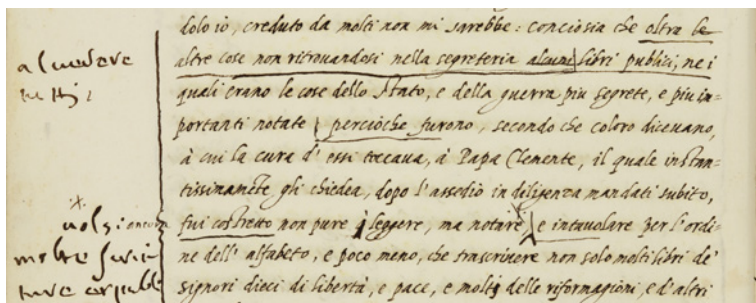 dolo io, creduto da molti non mi sarebbe: conciosia che oltra le
altre cose non ritrovandosi nella segreteria alcuni libri publici, ne i
quali erano le cose dello Stato, e della guerra piu segrete, e piu im-
portanti notate perciòche furono, secondo che coloro dicevano,
à cui la cura d'essi toccava, à Papa Clemente, il quale instan-
tissimamẽte gli chiedea, dopo l'assedio in diligenza mandati subito,
fui costretto non pure à leggere, ma notare, e intavolare per l'ordi-
ne dell'alfabeto, e poco meno, che trascrivere non solo molti libri de'
signori dieci di libertà, e pace, e molti delle riformagioni, e d'altri
volsi ancora
molte scrit
ture